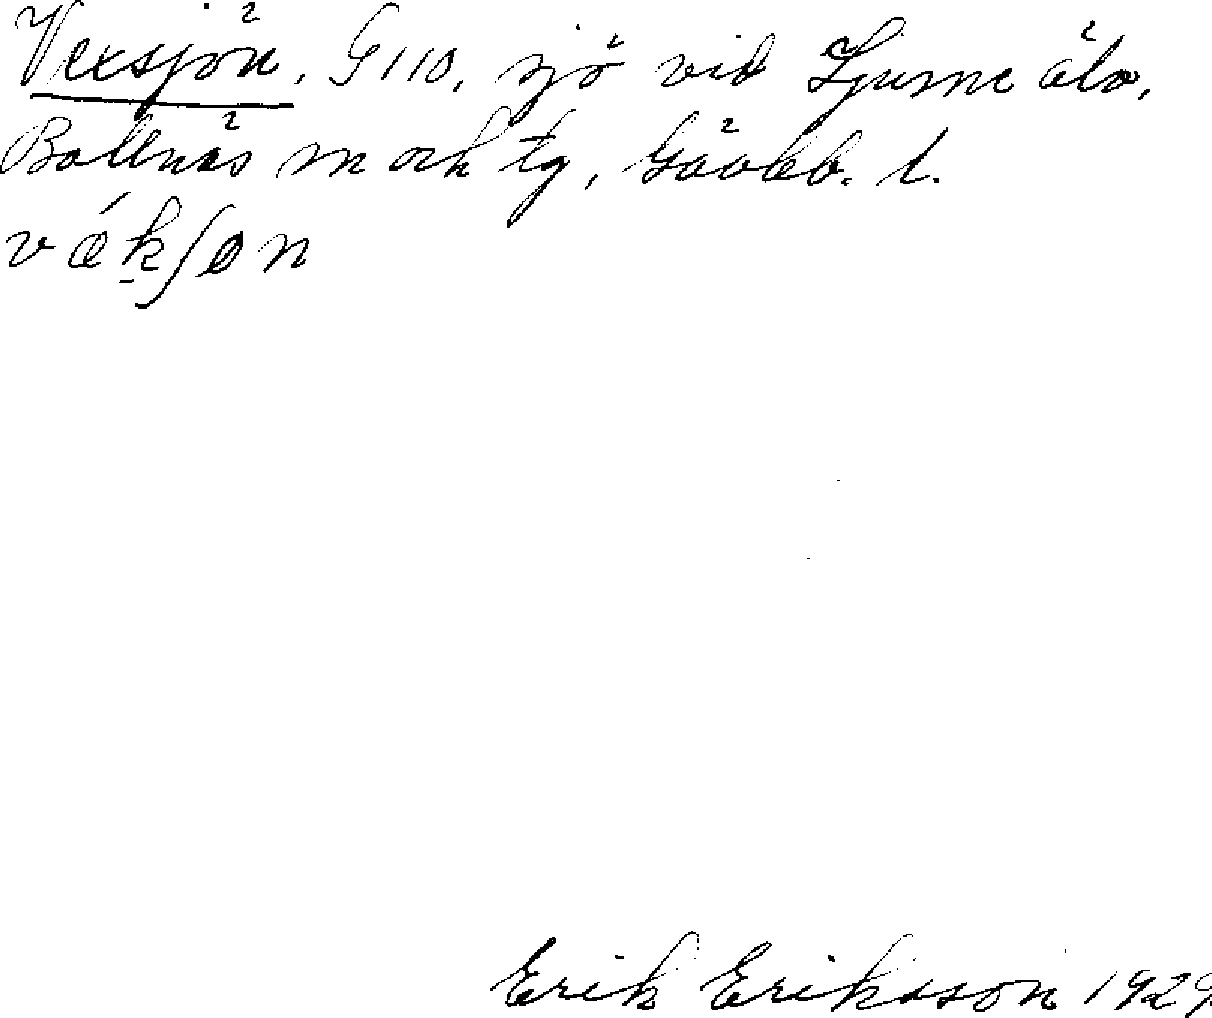 Vexsjön, G 110, sjö vid Ljusne älv,
Bollnäs sn och tg, Gävleb. l.
vǽkʃøn
Erik Eriksson 1929